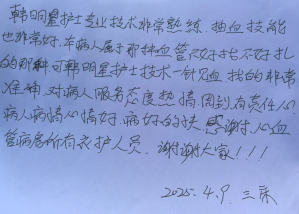 韩明星护士专业技术非常熟练,抽血技能
也非常好,本病人属于那种血管不好找不好扎
的那种,可韩明星护士技术一针见血,找的非常
准确,对病人服务态度热情,周到,有责任心
病人病情心情好,病好的快,感谢心血
管病房所有衣护人员,谢谢大家!!!
2025.4.9. 三床